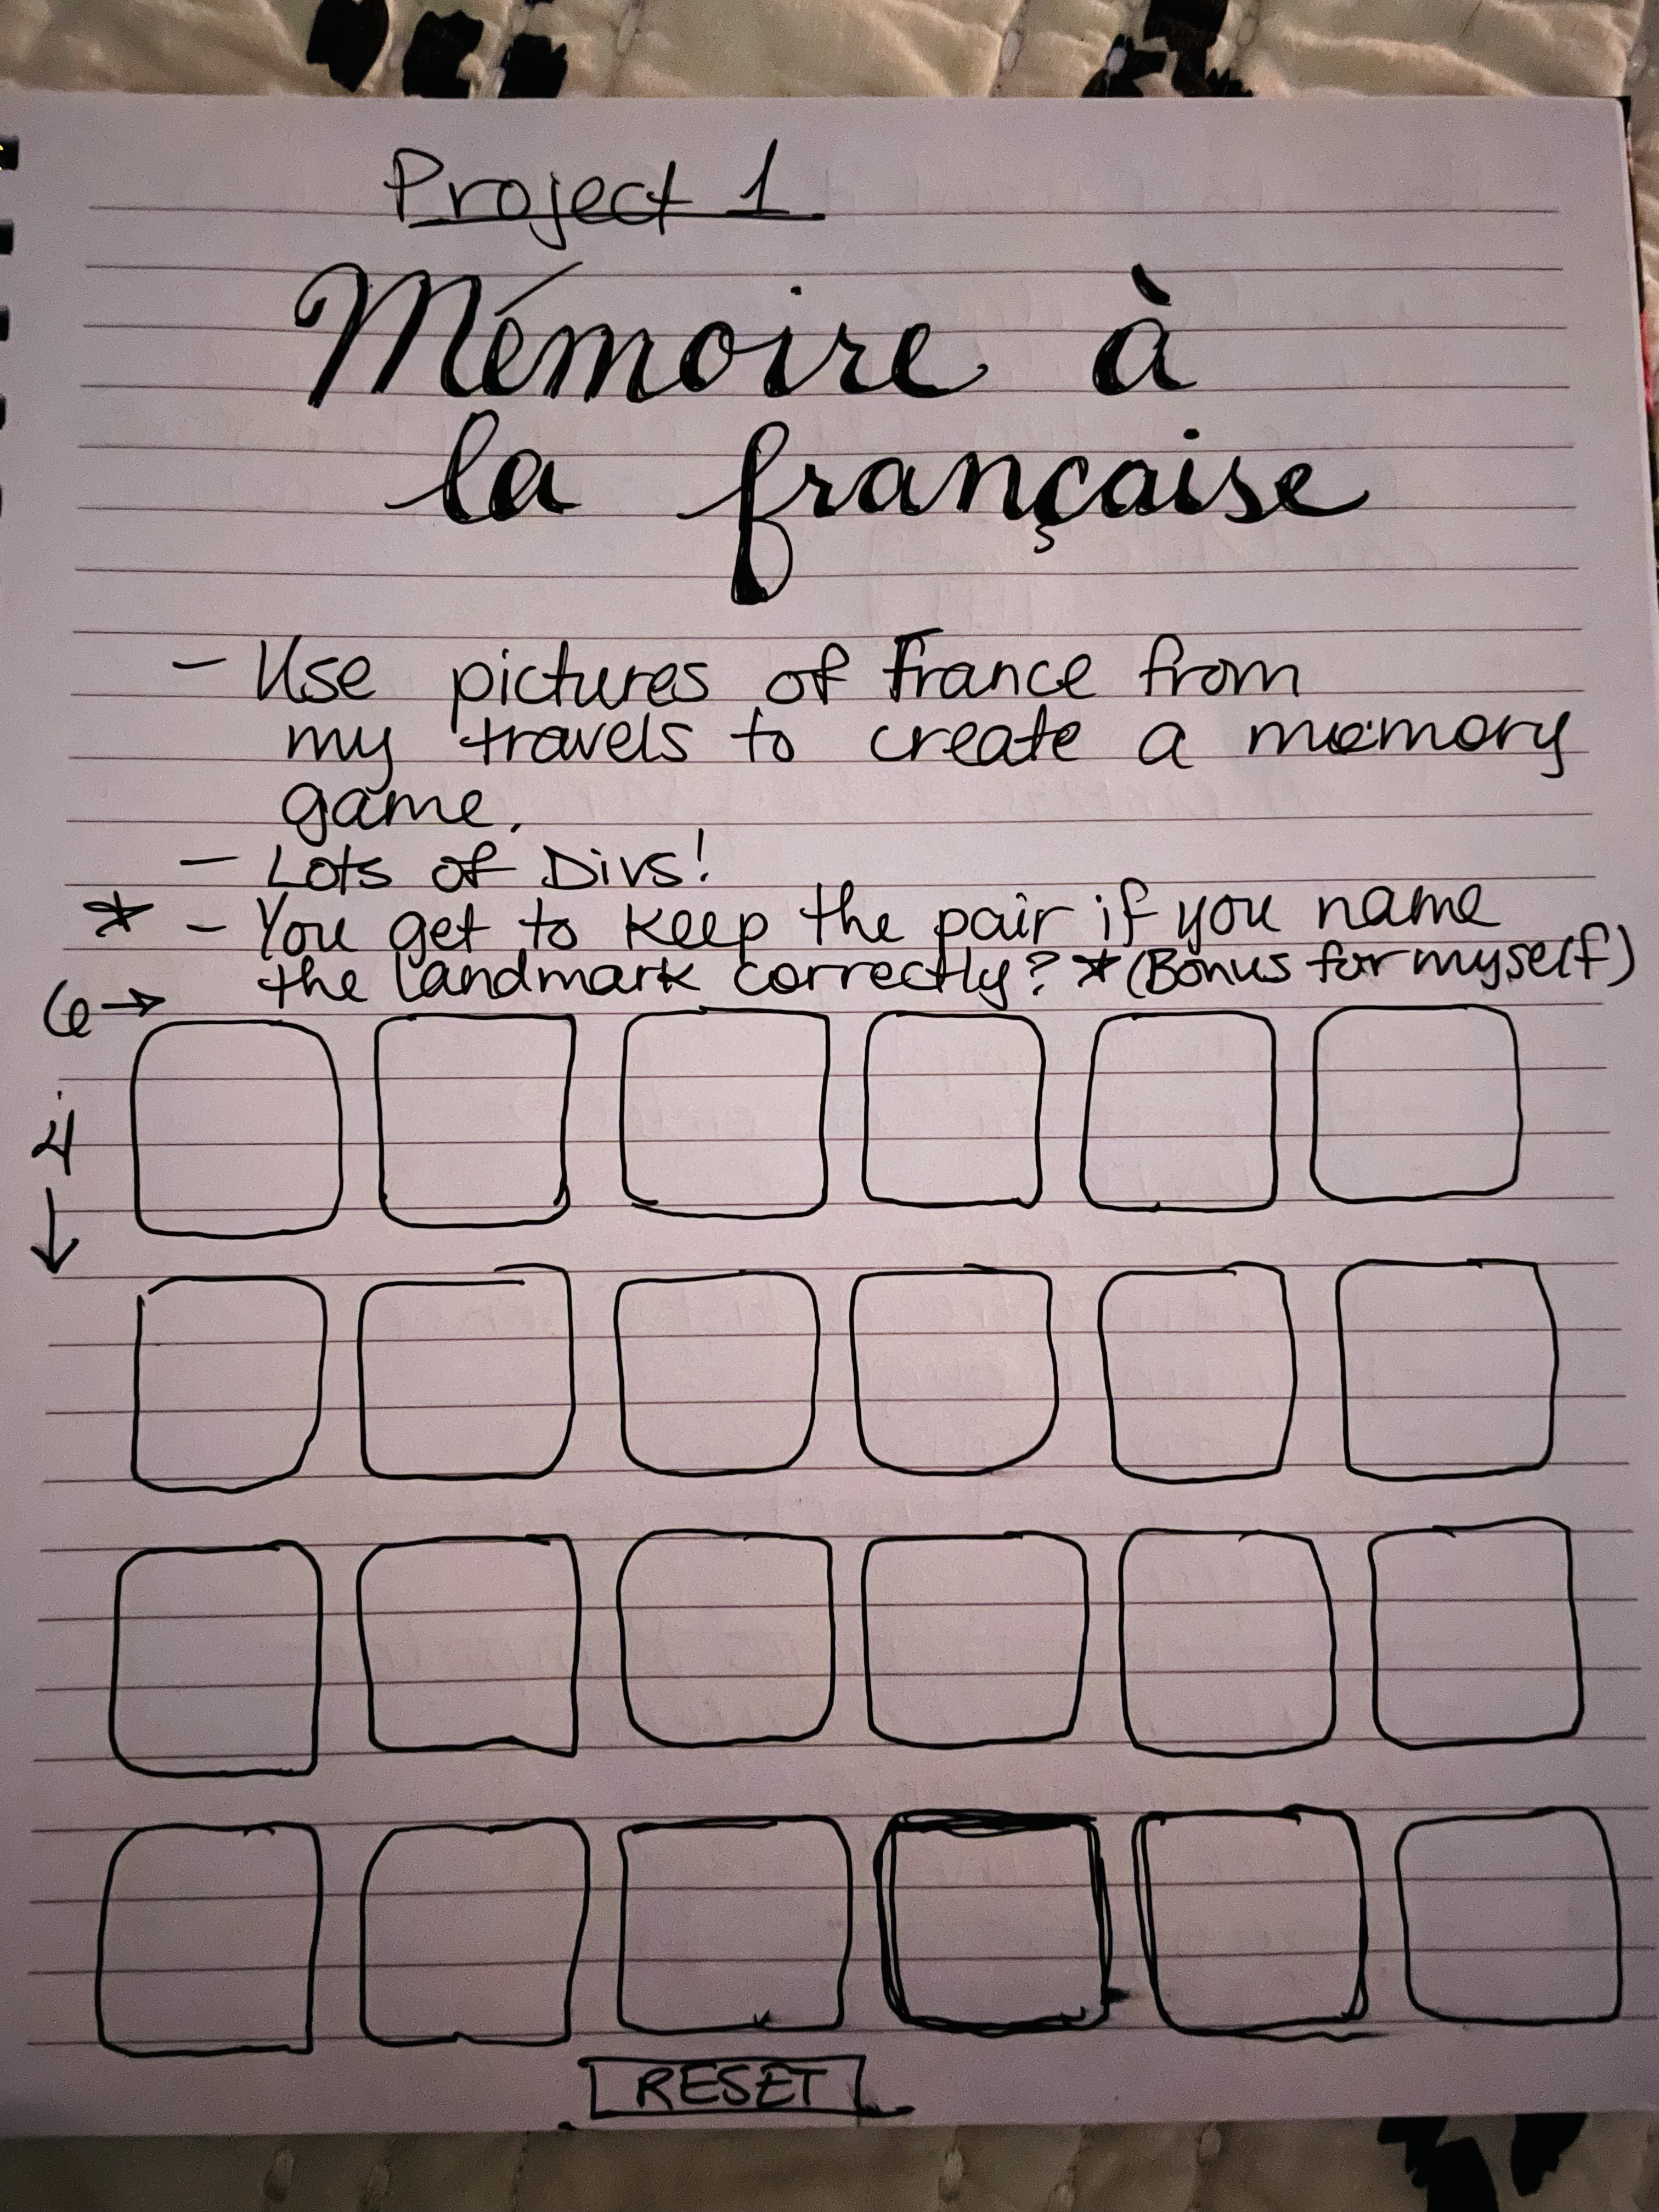 Project 1
Mémoire à
la française
- Use pictures of France from
my travels to create a memory
game.
- Lots of Divs!
* - You get to keep the pair if you name
the landmark correctly? * (Bonus for myself)
6 →
4
↓
RESET